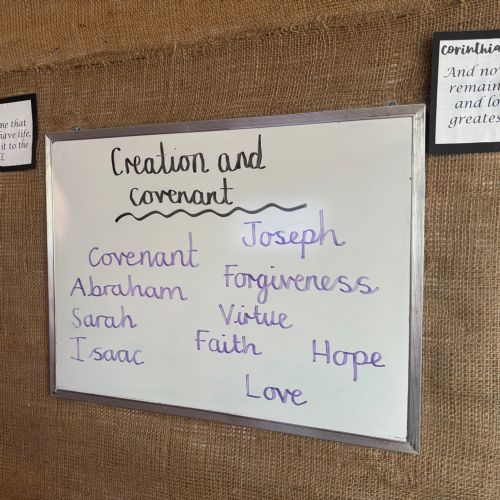 me that
have life,
it to the
Creation and
covenant
Covenant
Abraham
Sarah
Isaac
Joseph
Forgiveness
Virtue
Faith
Hope
Love
Corinthia
And no
remain
and lo
greates